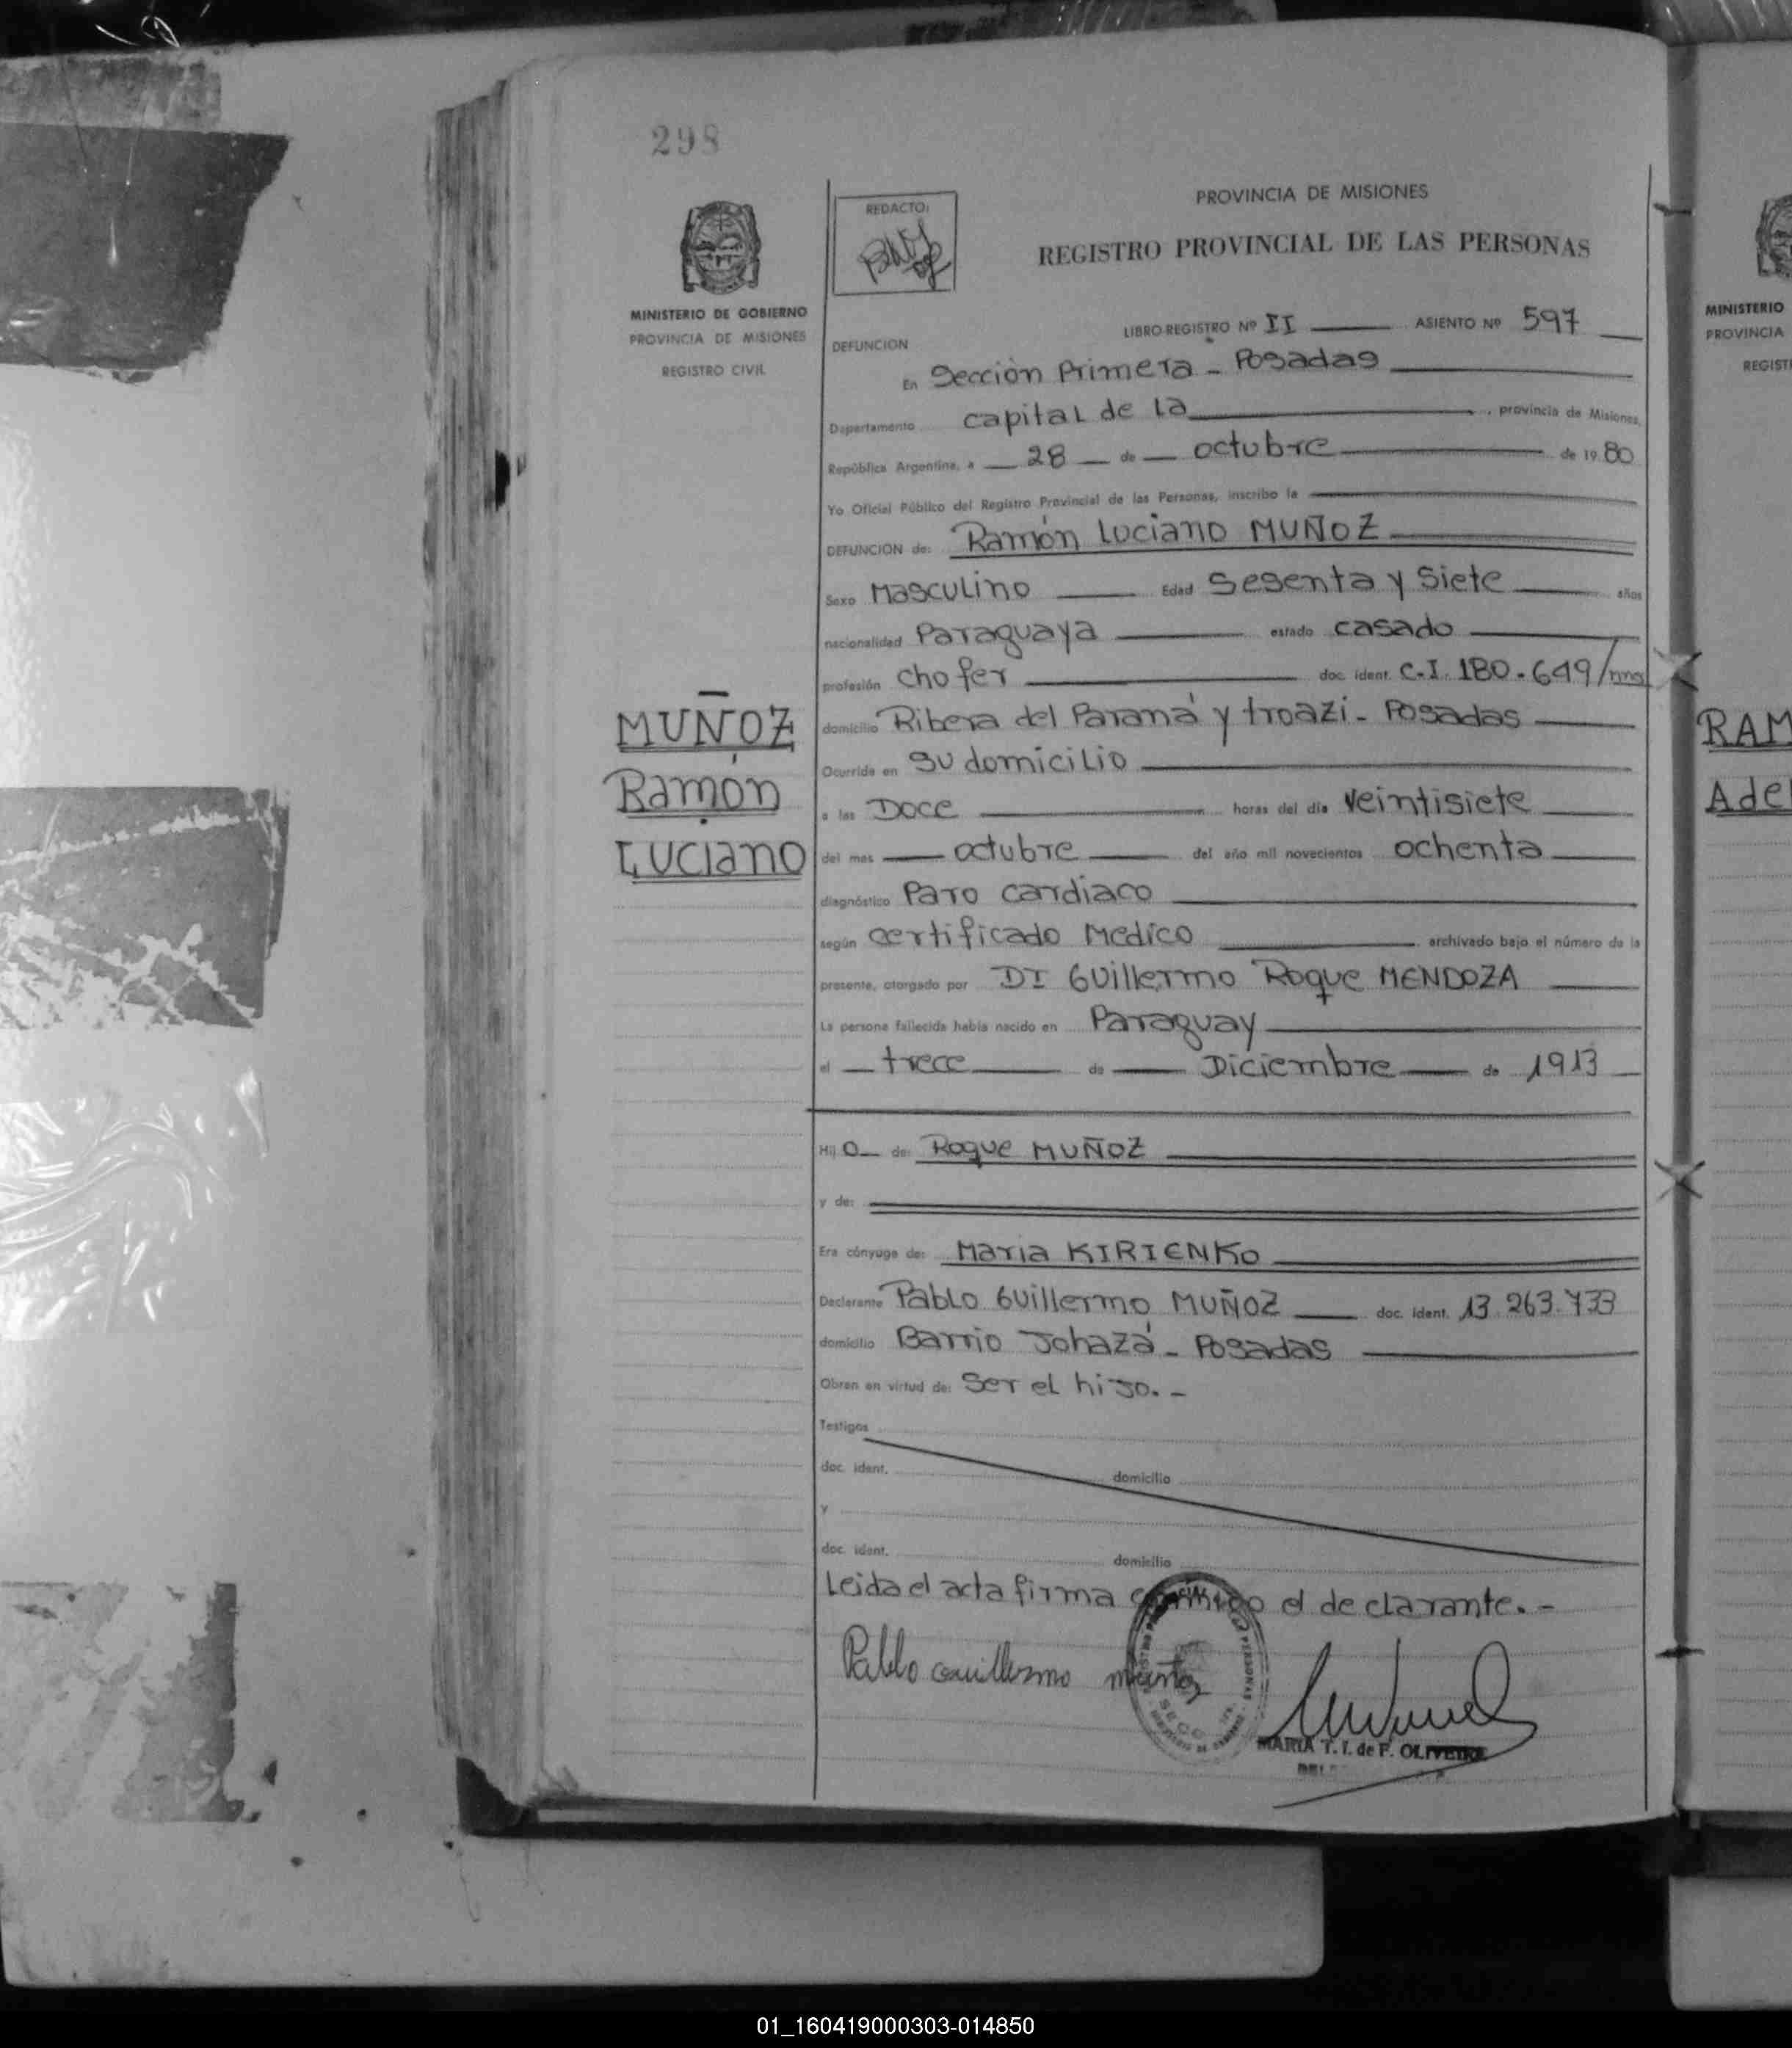 298
PROVINCIA DE MISIONES
REDACTO:
REGISTRO PROVINCIAL DE LAS PERSONAS
MINISTERIO DE GOBIERNO
PROVINCIA DE MISIONES
REGISTRO CIVIL
LIBRO-REGISTRO Nº II ASIENTO Nº 597
DEFUNCION
En Sección Primera - Posadas
Departamento capital de la , provincia de Misiones,
República Argentina, a 28 de octubre de 1980
Yo Oficial Público del Registro Provincial de las Personas, inscribo la
DEFUNCION de: Ramón Luciano MUÑOZ
Sexo Masculino Edad Sesenta y Siete años
nacionalidad Paraguaya estado casado
profesión chofer doc. ident. C.I. 180.649/mns
MUÑOZ
Ramón
Luciano
domicilio Ribera del Paraná y troazi - Posadas
Ocurrida en su domicilio
a las Doce horas del día Veintisiete
del mes octubre del año mil novecientos ochenta
diagnóstico Paro cardiaco
según certificado Medico archivado bajo el número de la
presente, otorgado por Dr Guillermo Roque MENDOZA
La persona fallecida había nacido en Paraguay
el trece de Diciembre de 1913
Hij o de: Roque MUÑOZ
y de:
Era cónyuge de: Maria KIRIENKO
Declarante Pablo Guillermo MUÑOZ doc. ident. 13.263.733
domicilio Barrio Johazá - Posadas
Obran en virtud de: Ser el hijo. -
Testigos
doc. ident. domicilio
y
doc. ident. domicilio
Leida el acta firma conmigo el declarante. -
Pablo Guillermo muñoz
MARIA T. I. de F. OLIVEIRA
MINISTERIO
PROVINCIA
REGIST
RAM
Adel
01_160419000303-014850